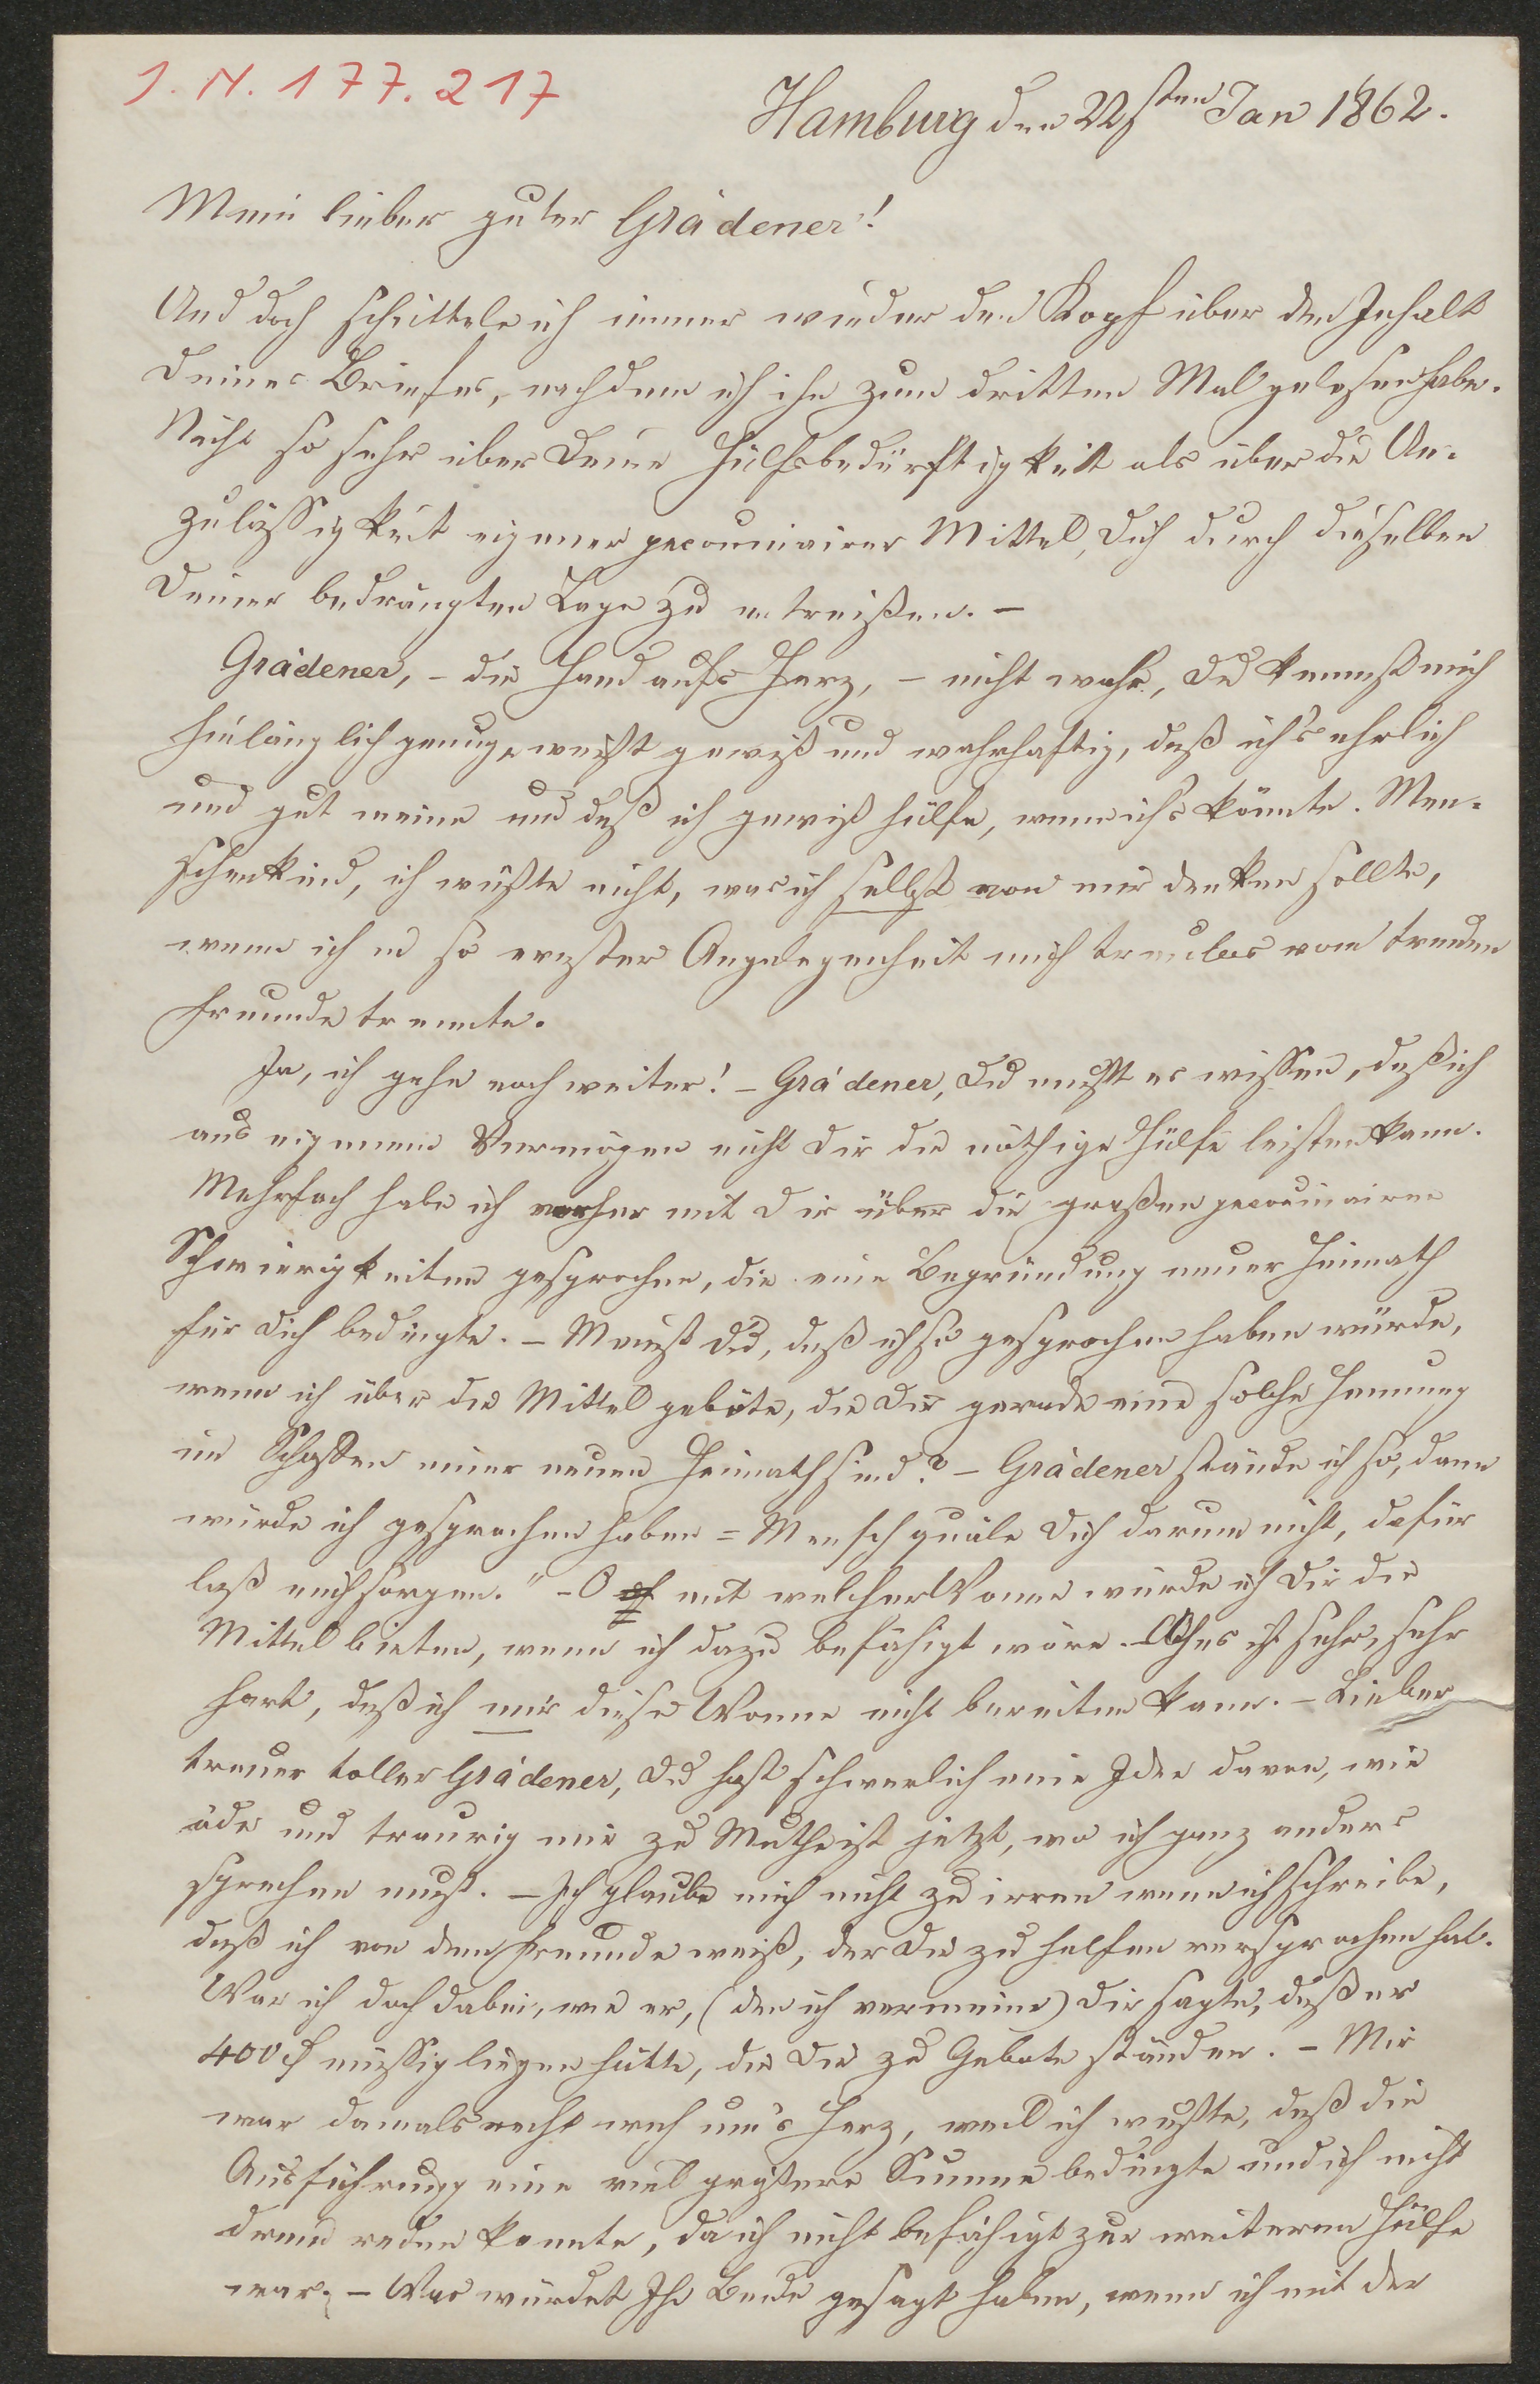 J. N. 177.217
Hamburg den 22sten Jan 1862.
Mein lieber guter Grädener!
Und doch schüttele ich immer wieder den Kopf über den Inhalt
Deines Briefes, nachdem ich ihn zum dritten Mal gelesen habe.
Nicht so sehr über Deine Hülfsbedürftigkeit als über die Un-
zulässigkeit eigener pecouniairer Mittel, Dich durch dieselben
Deiner bedrängten Lage zu entreißen. –
Grädener, – die Hand aufs Herz, – nicht wahr, Du kennst mich
hinlänglich genug, weißt gewiß und wahrhaftig, daß ich's ehrlich
und gut meine und daß ich gewiß hülfe, wenn ich's könnte. Men-
schenkind, ich wüßte nicht, was ich selbst von mir denken sollte,
wenn ich in so ernster Angelegenheit mich treulos vom treuen
Freunde trennte.
Ja, ich gehe noch weiter! – Grädener, Du mußt es wissen, daß ich
aus eigenem Vermögen nicht Dir die nöthige Hülfe leisten kann.
Mehrfach habe ich vorher mit Dir über die großen pecouniairen
Schwierigkeiten gesprochen, die eine Begründung neuer Heimath
für Dich bedingte. – Meinst Du, daß ich so gesprochen haben würde,
wenn ich über die Mittel geböte, die Dir gerade eine solche Hemmung
im Schaffen einer neuen Heimath sind? – Grädener stände ich so, dann
würde ich gesprochen haben = Mensch quäle Dich darum nicht, dafür
laß mich sorgen." – O mit welcher Wonne würde ich Dir die
Mittel bieten, wenn ich dazu befähigt wäre. – Ach es ist sehr, sehr
hart, daß ich mir diese Wonne nicht bereiten kann. – Lieber
treuer toller Grädener, Du hast schwerlich eine Idee davon, wie
öde und traurig mir zu Muthe ist jetzt, wo ich ganz anders
sprechen muß. – Ich glaube mich nicht zu irren wenn ich schreibe,
daß ich von dem Freunde weiß, der Dir zu helfen versprochen hat.
War ich doch dabei, wie er, (den ich vermeine) Dir sagte, daß er
400 müssig liegen hätte, die Dir zu Gebote ständen. – Mir
war damals recht weh um's Herz, weil ich wußte, daß die
Ausführung eine viel größere Summe bedingte und ich nicht
drein reden konnte, da ich nicht befähigt zur weiteren Hülfe
war. – Was würdet Ihr Beide gesagt haben, wenn ich mit der